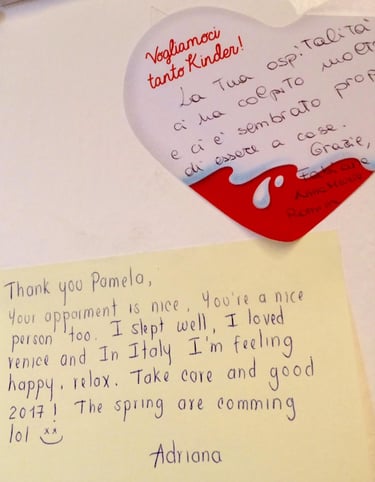 Vogliamoci
tanto Kinder!
La Tua ospitalità
ci ha colpito molt
e ci è sembrato prop
di essere a casa.
Grazie,
Thank you Pamela,
Your apparment is nice, You're a nice
person too. I slept well, I loved
venice and In Italy I'm feeling
happy, relax. Take care and good
2017! The spring are comming
lol
Adriana